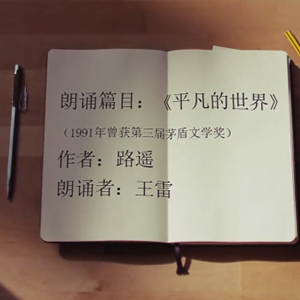 朗诵篇目：《平凡的世界》
（1991年曾获第三届茅盾文学奖）
作者：路遥
朗诵者：王雷